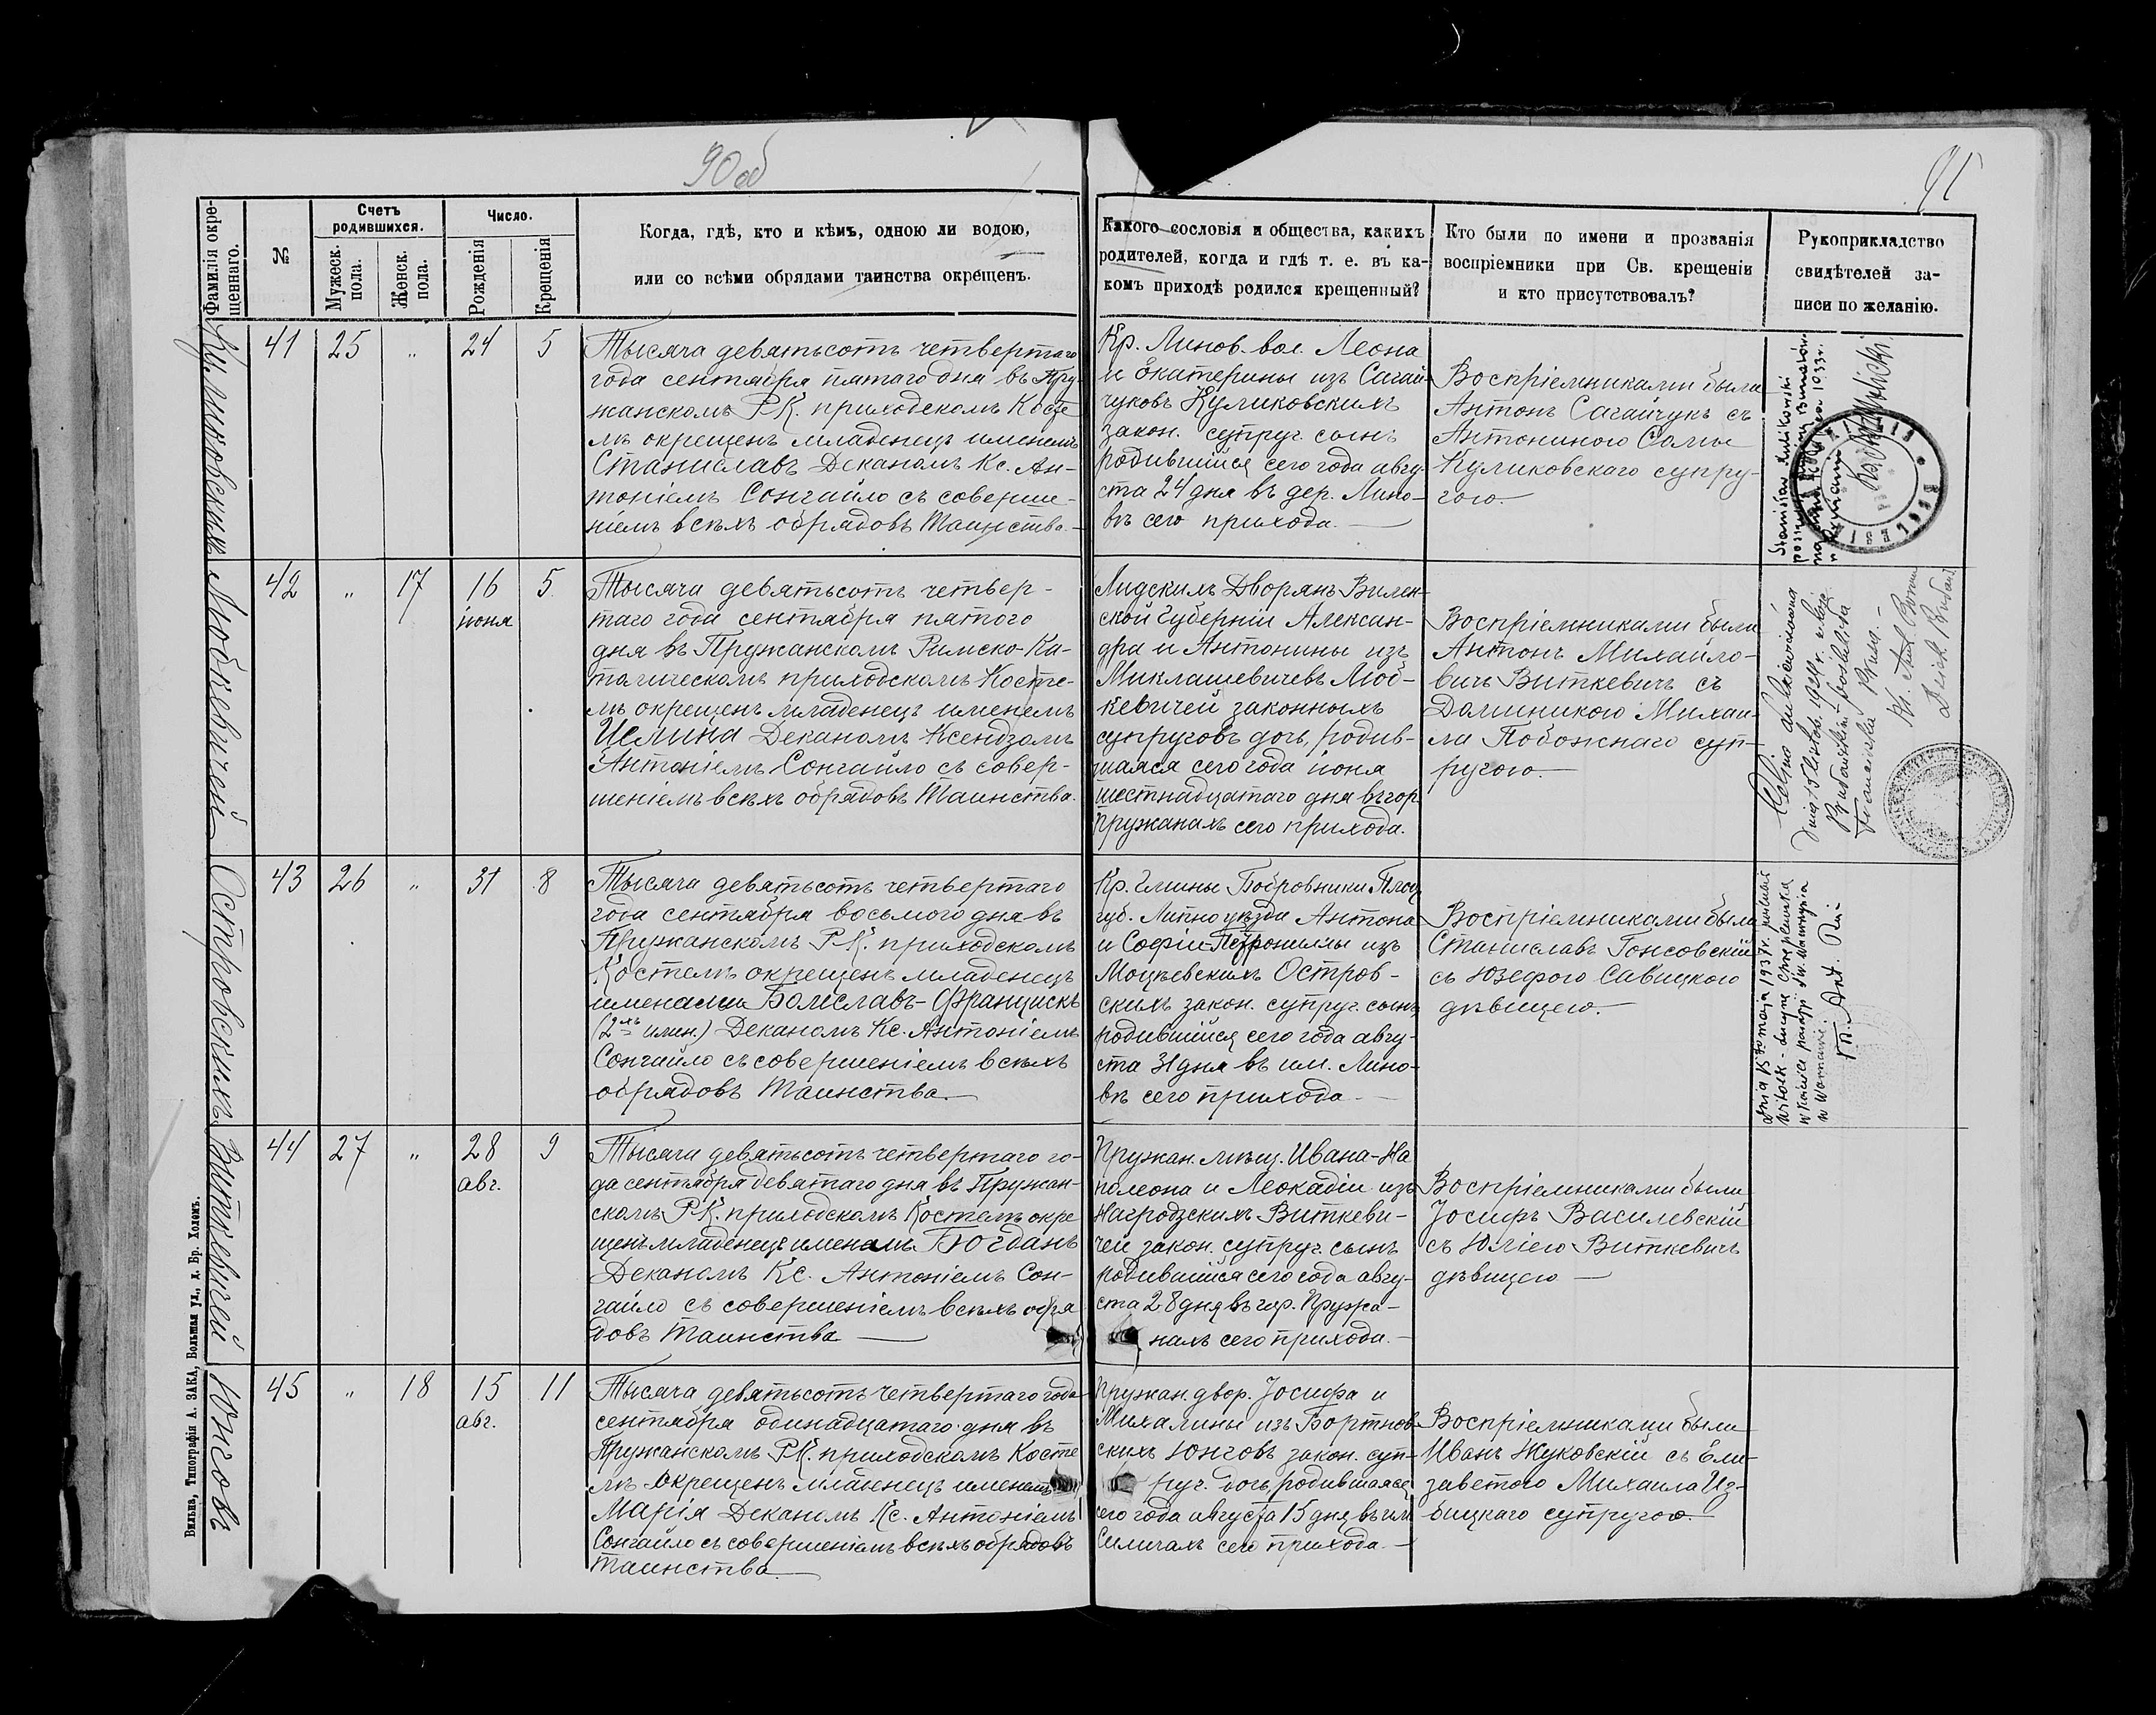 90об
91
Фамилія окре-
щеннаго.
№
Счетъ
родившихся.
Мужеск.
пола.
Женск.
пола.
Число.
Рожденія
Крещенія
Когда, гдѣ, кто и кѣмъ, одною ли водою,
или со всѣми обрядами таинства окрещенъ.
Какого сословія и общества, какихъ
родителей, когда и гдѣ т. е. въ ка-
комъ приходѣ родился крещенный?
Кто были по имени и прозванія
воспріемники при Св. крещеніи
и кто присутствовалъ?
Рукоприкладство
свидѣтелей за-
писи по желанію.
Куликовскихъ
41
25
"
24
5
Тысяча девятьсотъ четвертаго
года сентября пятаго дня въ Пру-
жанскомъ Р.К. приходскомъ Косте-
лѣ окрещенъ младенецъ именемъ
Станиславъ Деканомъ Кс. Ан-
тоніемъ Сонгайло съ соверше-
ніемъ всѣхъ обрядовъ Таинства.
Кр. Линов. вол. Леона
и Екатерины изъ Сагай-
чуковъ Куликовскихъ
закон. супруг. сынъ
родившійся сего года авгу-
ста 24 дня въ дер. Лино-
вѣ сего прихода.
Воспріемниками были
Антонъ Сагайчукъ съ
Антониною
Куликовскаго супру-
гою.
Stanisław Kulikowski
1933 r.
Любкевичей
42
"
17
16
іюня
5
Тысяча девятьсотъ четвер-
таго года сентября пятаго
дня въ Пружанскомъ Римско-Ка-
толическомъ приходскомъ Косте-
лѣ окрещенъ младенецъ именемъ
Целина Деканомъ Ксендзомъ
Антоніемъ Сонгайло съ совер-
шеніемъ всѣхъ обрядовъ Таинства.
Лидскихъ Дворянъ Вилен-
ской Губерніи Алексан-
дра и Антонины изъ
Миклашевичевъ Люб-
кевичей законныхъ
супруговъ дочь, родив-
шаяся сего года іюня
шестнадцатаго дня въ гор.
Пружанахъ сего прихода.
Воспріемниками были
Антонъ Михайло-
вичъ Виткевичъ съ
Доминикою Михаи-
ла Побожнаго суп-
ругою.
Celina
Островскихъ
43
26
"
31
8
Тысяча девятьсотъ четвертаго
года сентября восьмого дня въ
Пружанскомъ Р.К. приходскомъ
Костелѣ окрещенъ младенецъ
именами Болиславъ-Францискъ
(2-хъ имен.) Деканомъ Кс. Антоніемъ
Сонгайло съ совершеніемъ всѣхъ
обрядовъ Таинства.
Кр. Гмины Бобровники Плоц.
губ. Липно уѣзда Антона
и Софіи-Петронилы изъ
Моцѣевскихъ Остров-
скихъ закон. супруг. сынъ
родившійся сего года авгу-
ста 31 дня въ им. Лино-
вѣ сего прихода.
Воспріемниками были
Станиславъ Гонсовскій
съ Юзефою Савицкою
дѣвицею.
dnia 15 maja 1937 r. poślubił
w Warszawie.
Виткевичей
44
27
"
28
авг.
9
Тысяча девятьсотъ четвертаго го-
да сентября девятаго дня въ Пружан-
скомъ Р.К. приходскомъ Костелѣ окре-
щенъ младенецъ именемъ Богданъ
Деканомъ Кс. Антоніемъ Сон-
гайло съ совершеніемъ всѣхъ обря-
довъ Таинства
Пружан. мѣщ. Ивана-На-
полеона и Леокадіи изъ
Нагродзскихъ Виткеви-
чей закон. супруг. сынъ
родившійся сего года авгу-
ста 28 дня въ гор. Пружа-
нахъ сего прихода.
Воспріемниками были
Іосифъ Василевскій
съ Юліею Виткевичъ
дѣвицею
Юнговъ
45
"
18
15
авг.
11
Тысяча девятьсотъ четвертаго года
сентября одинадцатаго дня въ
Пружанскомъ Р.К. приходскомъ Косте-
лѣ окрещенъ младенецъ именемъ
Марія Деканомъ Кс. Антоніемъ
Сонгайло съ совершеніемъ всѣхъ обрядовъ
Таинства
Пружан. двор. Іосифа и
Михалины изъ Бортнов-
скихъ Юнговъ закон. суп-
руг. дочь, родившаяся
сего года августа 15 дня въ им.
Селичахъ сего прихода.
Воспріемниками были
Иванъ Жуковскій съ Ели-
заветою Михаила Из-
бицкаго супругою.
Вильна, Типографія А. ЗАКА, Большая ул., д. Бр. Холемъ.